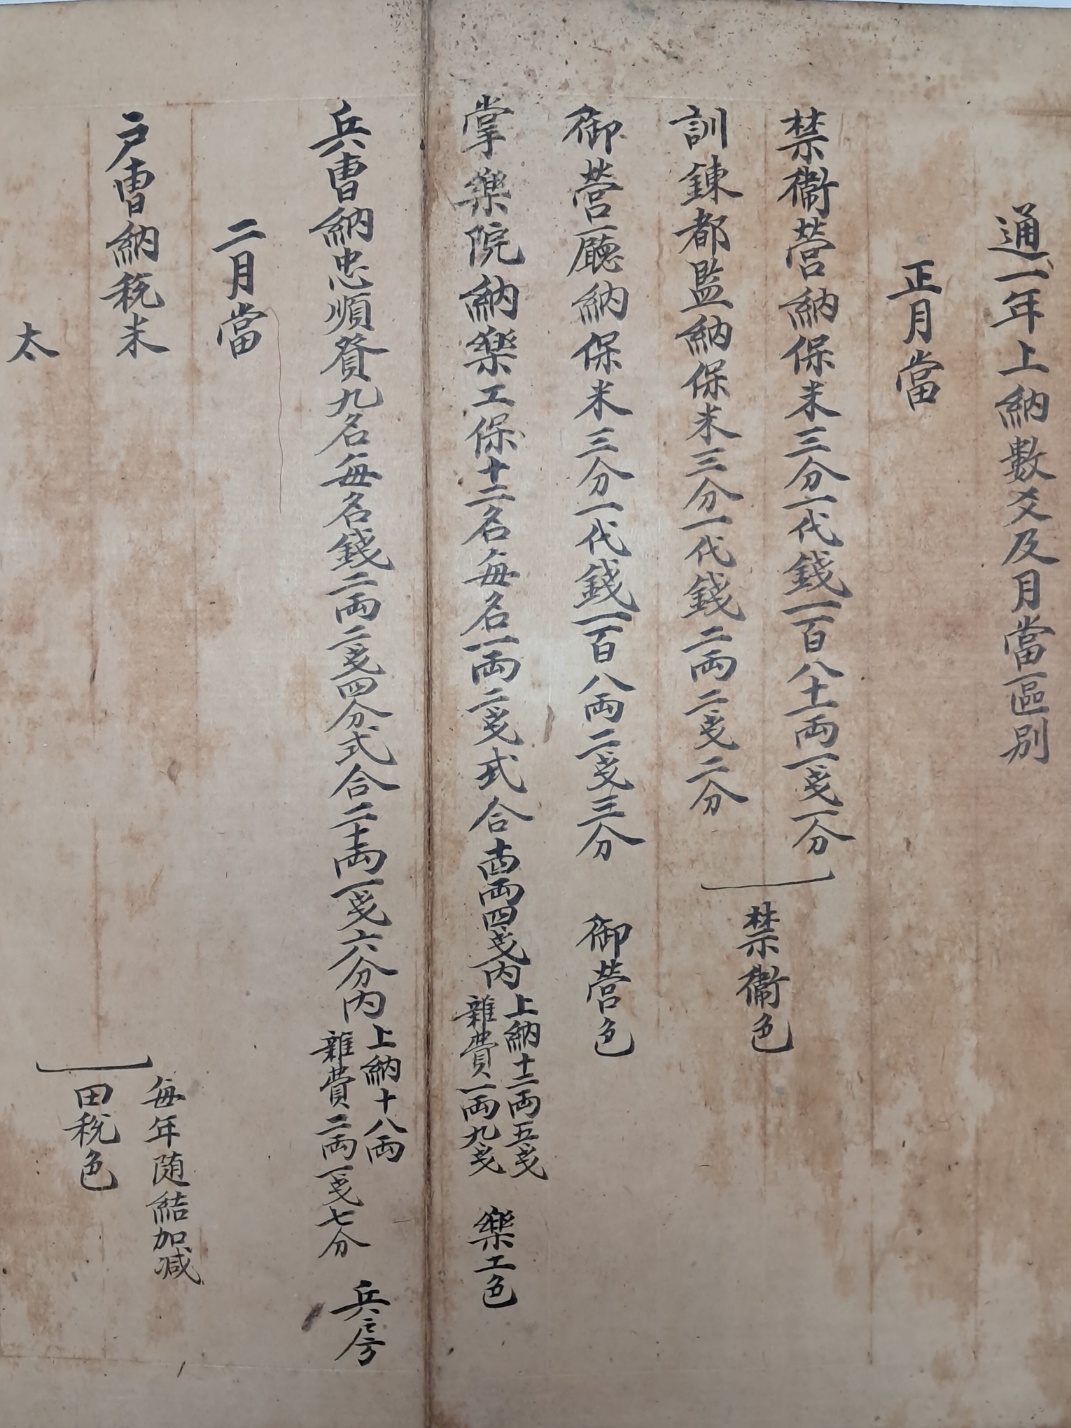 通一年上納數爻及月當區別
正月當
禁衛營納保米三分一代錢一百八十一兩一戔一分
訓鍊都監納保米三分一代錢二兩二戔二分
禁衛色
御營廳納保米三分一代錢一百八兩二戔三分 御營色
掌樂院納樂工保十二名每名一兩二戔式合十四兩四戔內
上納十二兩五戔
雜費一兩九戔
樂工色
兵曹納忠順贊九名每名錢二兩二戔四分式合二十兩一戔六分內
上納十八兩
雜費二兩一戔七分
兵房
二月當
戶曹納稅米
太
每年隨結加減
田稅色